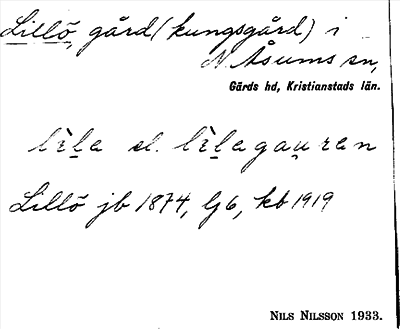 Lillö, gård (kungsgård) i
N. Åsums sn,
Gärds hd, Kristianstads län.
lìl̠a el. lìl̠agau̯ren
Lillö jb 1874, Gj6, kb 1919
NILS NILSSON 1933.